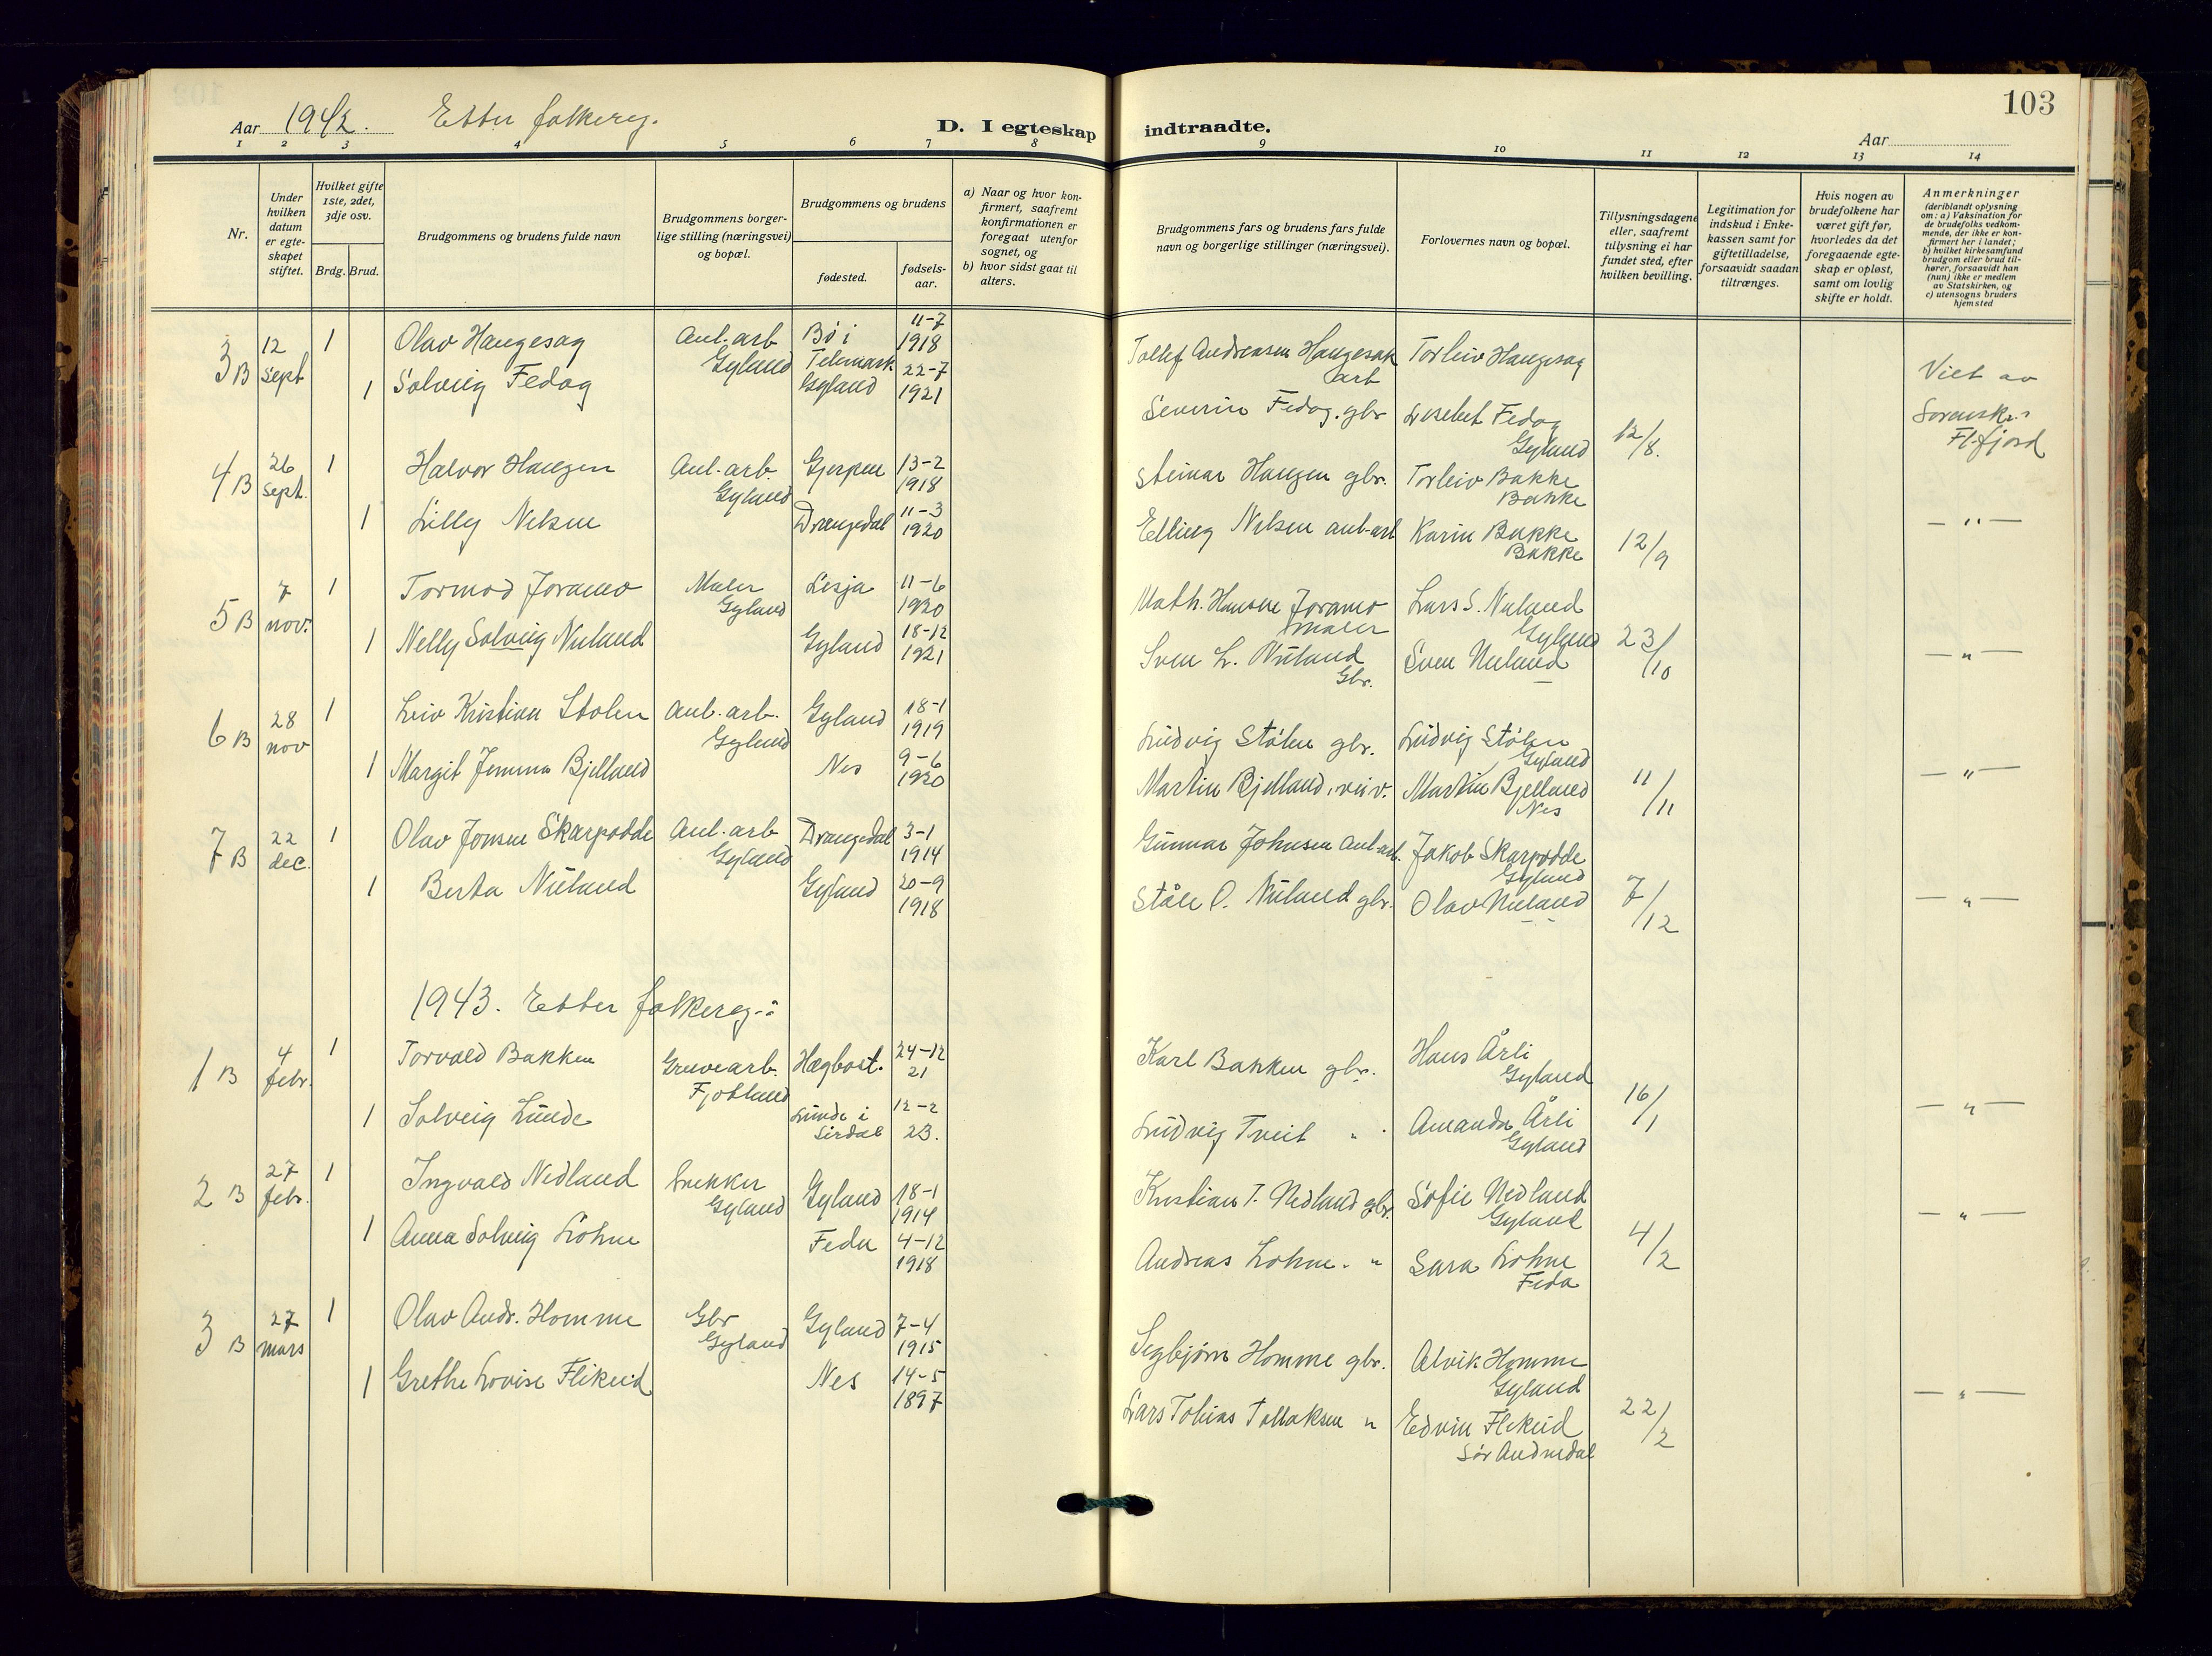 103
Aar 1942. Etter folkereg.
D. I egteskap indtraadte.
Aar
1 2 3 4 5 6 7 8 9 10 11 12 13 14
Nr.
Under hvilken datum er egte-skapet stiftet.
Hvilket gifte 1ste, 2det, 3dje osv.
Brdg. Brud.
Brudgommens og brudens fulde navn
Brudgommens borger-lige stilling (næringsvei) og bopæl.
Brudgommens og brudens
fødested.
fødsels-aar.
a) Naar og hvor kon-firmert, saafremt konfirmationen er foregaat utenfor sognet, og
b) hvor sidst gaat til alters.
Brudgommens fars og brudens fars fulde navn og borgerlige stillinger (næringsvei).
Forlovernes navn og bopæl.
Tillysningsdagene eller, saafremt tillysning ei har fundet sted, efter hvilken bevilling.
Legitimation for indskud i Enke-kassen samt for giftetilladelse, forsaavidt saadan tiltrænges.
Hvis nogen av brudefolkene har været gift før, hvorledes da det foregaaende egte-skap er opløst, samt om lovlig skifte er holdt.
Anmerkninger
(deriblandt oplysning om: a) Vaksination for de brudefolks vedkom-mende, der ikke er kon-firmert her i landet; b) hvilket kirkesamfund brudgom eller brud til-hører, forsaavidt han (hun) ikke er medlem av Statskirken, og c) utensogns bruders hjemsted
3 B 12 Sept 1 Olav Haugesag Anl. arb Gyland Bø i Telemark 11-7 1918 Tollef Andreasen Haugesak arb Torleiv Haugesag
1 Solveig Fedog Gyland 22-7 1921 Severin Fedog. gbr Lisebet Fedog Gyland 12/8. Viet av Sorenskr. i Fl.fjord
4 B 26 Sept. 1 Halvor Haugen Anl. arb. Gyland Gjerpen 13-2 1918 Steinar Haugen gbr. Torleiv Bakke Bakke
1 Lilly Nelsen Drangedal 11-3 1920 Elling Nelsen anl-arb Karin Bakke Bakke 12/9 — " —
5 B 7 nov. 1 Tormod Joramo Maler Gyland Lesja 11-6 1920 Math. Hansen Joramo maler Lars S. Nuland Gyland
1 Nelly Solveig Nuland Gyland 18-12 1921 Sven L. Nuland Gbr. Sven Nuland 23/10 — " —
6 B 28 nov 1 Leiv Kristian Stølen Anl. arb. Gyland Gyland 18-1 1919 Ludvig Stølen gbr. Ludvig Stølen Gyland
1 Margit Jemma Bjelland Nes 9-6 1920 Martin Bjelland, veiv. Martin Bjelland Nes 11/11 — " —
7 B 22 dec. 1 Olav Jonsen Skarpodde Anl. arb Gyland Drangedal 3-1 1914 Gunnar Johnsen Anl-arb. Jakob Skarpodde Gyland
1 Berta Nuland Gyland 20-9 1918 Ståle O. Nuland gbr. Olav Nuland 7/12 — " —
1943. Etter folkereg.:
1 B 4 febr. 1 Torvald Bakken Gruvearb. Fjotland Hægbost. 24-12 21 Karl Bakken gbr. Hans Årli Gyland
1 Solveig Lunde Lunde i Sirdal 12-2 23. Ludvig Tveit " Amanda Årli Gyland 16/1 — " —
2 B 27 febr. 1 Ingvald Nedland Snekker Gyland Gyland 18-1 1914 Kristian T. Nedland gbr. Sofie Nedland Gyland
1 Anna Solveig Lohne Feda 4-12 1918 Andreas Lohne. " Sara Lohne Feda 4/2 — " —
3 B 27 mars 1 Olav Andr. Homme Gbr Gyland Gyland 7-4 1915 Segbjørn Homme gbr. Alvik Homme Gyland
1 Grethe Lovise Flikeid Nes 14-5 1897 Lars Tobias Tallaksen " Edvin Flikeid Sør Audnedal 22/2 — " —